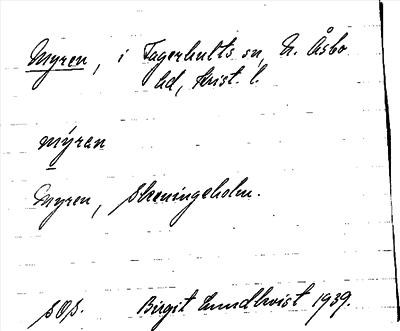 Myren, i Fagerhults sn, N. Åsbo
hd, Krist. l.
mýran
Myren, skeningeholm.
SOS. Birgit Lundkvist 1939.